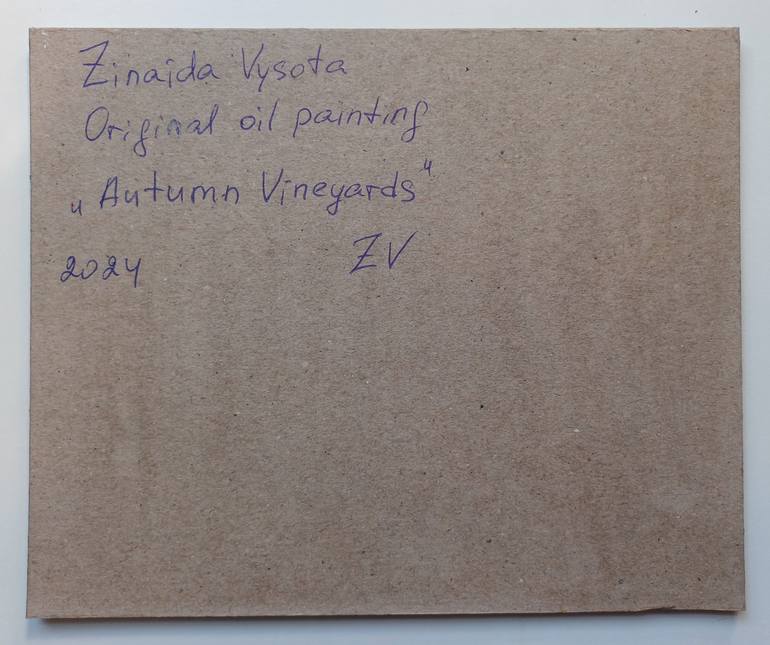 Zinaida Vysota
Original oil painting
„Autumn Vineyards“
2024 ZV